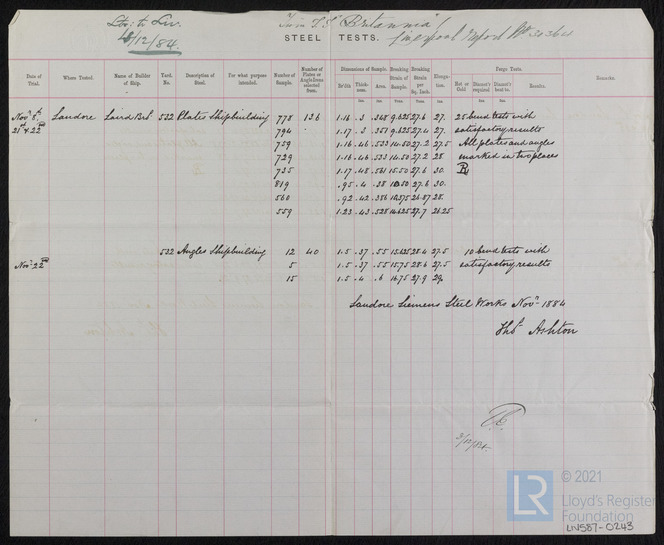 "Twin S.S. "Britannia"
18/12/84.
STEEL TESTS.
Liverpool Report No 30364
Date of Trial. Where Tested. Name of Builder of Ship. Yard. No. Description of Steel. For what purpose intended. Number of Sample. Number of Plates or Angle Irons selected from. Dimensions of Sample. Breaking Strain of Sample. Breaking Strain per Sq. Inch. Elongation. Forge Tests. Remarks.
Br'dth Thickness. Area. Hot or Cold Diamet'r required Diamet'r bent to. Results.
Ins Ins Ins Tons Tons Ins Ins Ins
Novr 8th Landore Laird Brs 532 Plates Shipbuilding 778 136 1.16 .3 .348 9.625 27.6 27. 25 bend tests with
21st & 22nd 794 1.17 .3 .351 9.625 27.4 27. satisfactory results
759 1.16 .46 .533 14.50 27.2 27.5 All plates and angles
729 1.16 .46 .533 14.50 27.2 28 marked in two places
735 1.17 .48 .561 15.50 27.6 30.
819 .95 .4 .38 10.50 27.6 30.
560 .92 .42 .386 10.375 26.87 28.
559 1.23 .43 .528 14.625 27.7 26.25
532 Angles Shipbuilding 12 40 1.5 .37 .55 15.625 28.4 27.5 10 bend tests with
Novr 22nd 5 1.5 .37 .55 15.75 28.6 27.5 satisfactory results
15 1.5 .4 .6 16.75 27.9 29.
Landore Siemens Steel Works Novr 1884
Thos. Ashton
3/12/84.
© 2021
LR
Lloyd's Register
Foundation
LIV557-0243